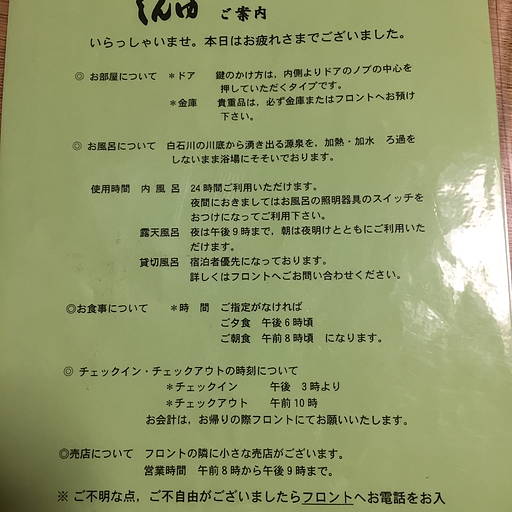 ご案内
いらっしゃいませ。本日はお疲れさまでございました。
◎ お部屋について ＊ドア 鍵のかけ方は，内側よりドアのノブの中心を
押していただくタイプです。
＊金庫 貴重品は，必ず金庫またはフロントへお預け
下さい。
◎ お風呂について 白石川の川底から湧き出る源泉を，加熱・加水 ろ過を
しないまま浴場にそそいでおります。
使用時間 内 風 呂 24時間ご利用いただけます。
夜間におきましてはお風呂の照明器具のスイッチを
おつけになってご利用下さい。
露天風呂 夜は午後９時まで，朝は夜明けとともにご利用いた
だけます。
貸切風呂 宿泊者優先になっております。
詳しくはフロントへごお問い合わせください。
◎お食事について ＊時 間 ご指定がなければ
ご夕食 午後６時頃
ご朝食 午前８時頃 になります。
◎ チェックイン・チェックアウトの時刻について
＊チェックイン 午後 ３時より
＊チェックアウト 午前10時
お会計は，お帰りの際フロントにてお願いいたします。
◎売店について フロントの隣に小さな売店がございます。
営業時間 午前８時から午後９時まで。
※ ご不明な点，ご不自由がございましたらフロントへお電話をお入